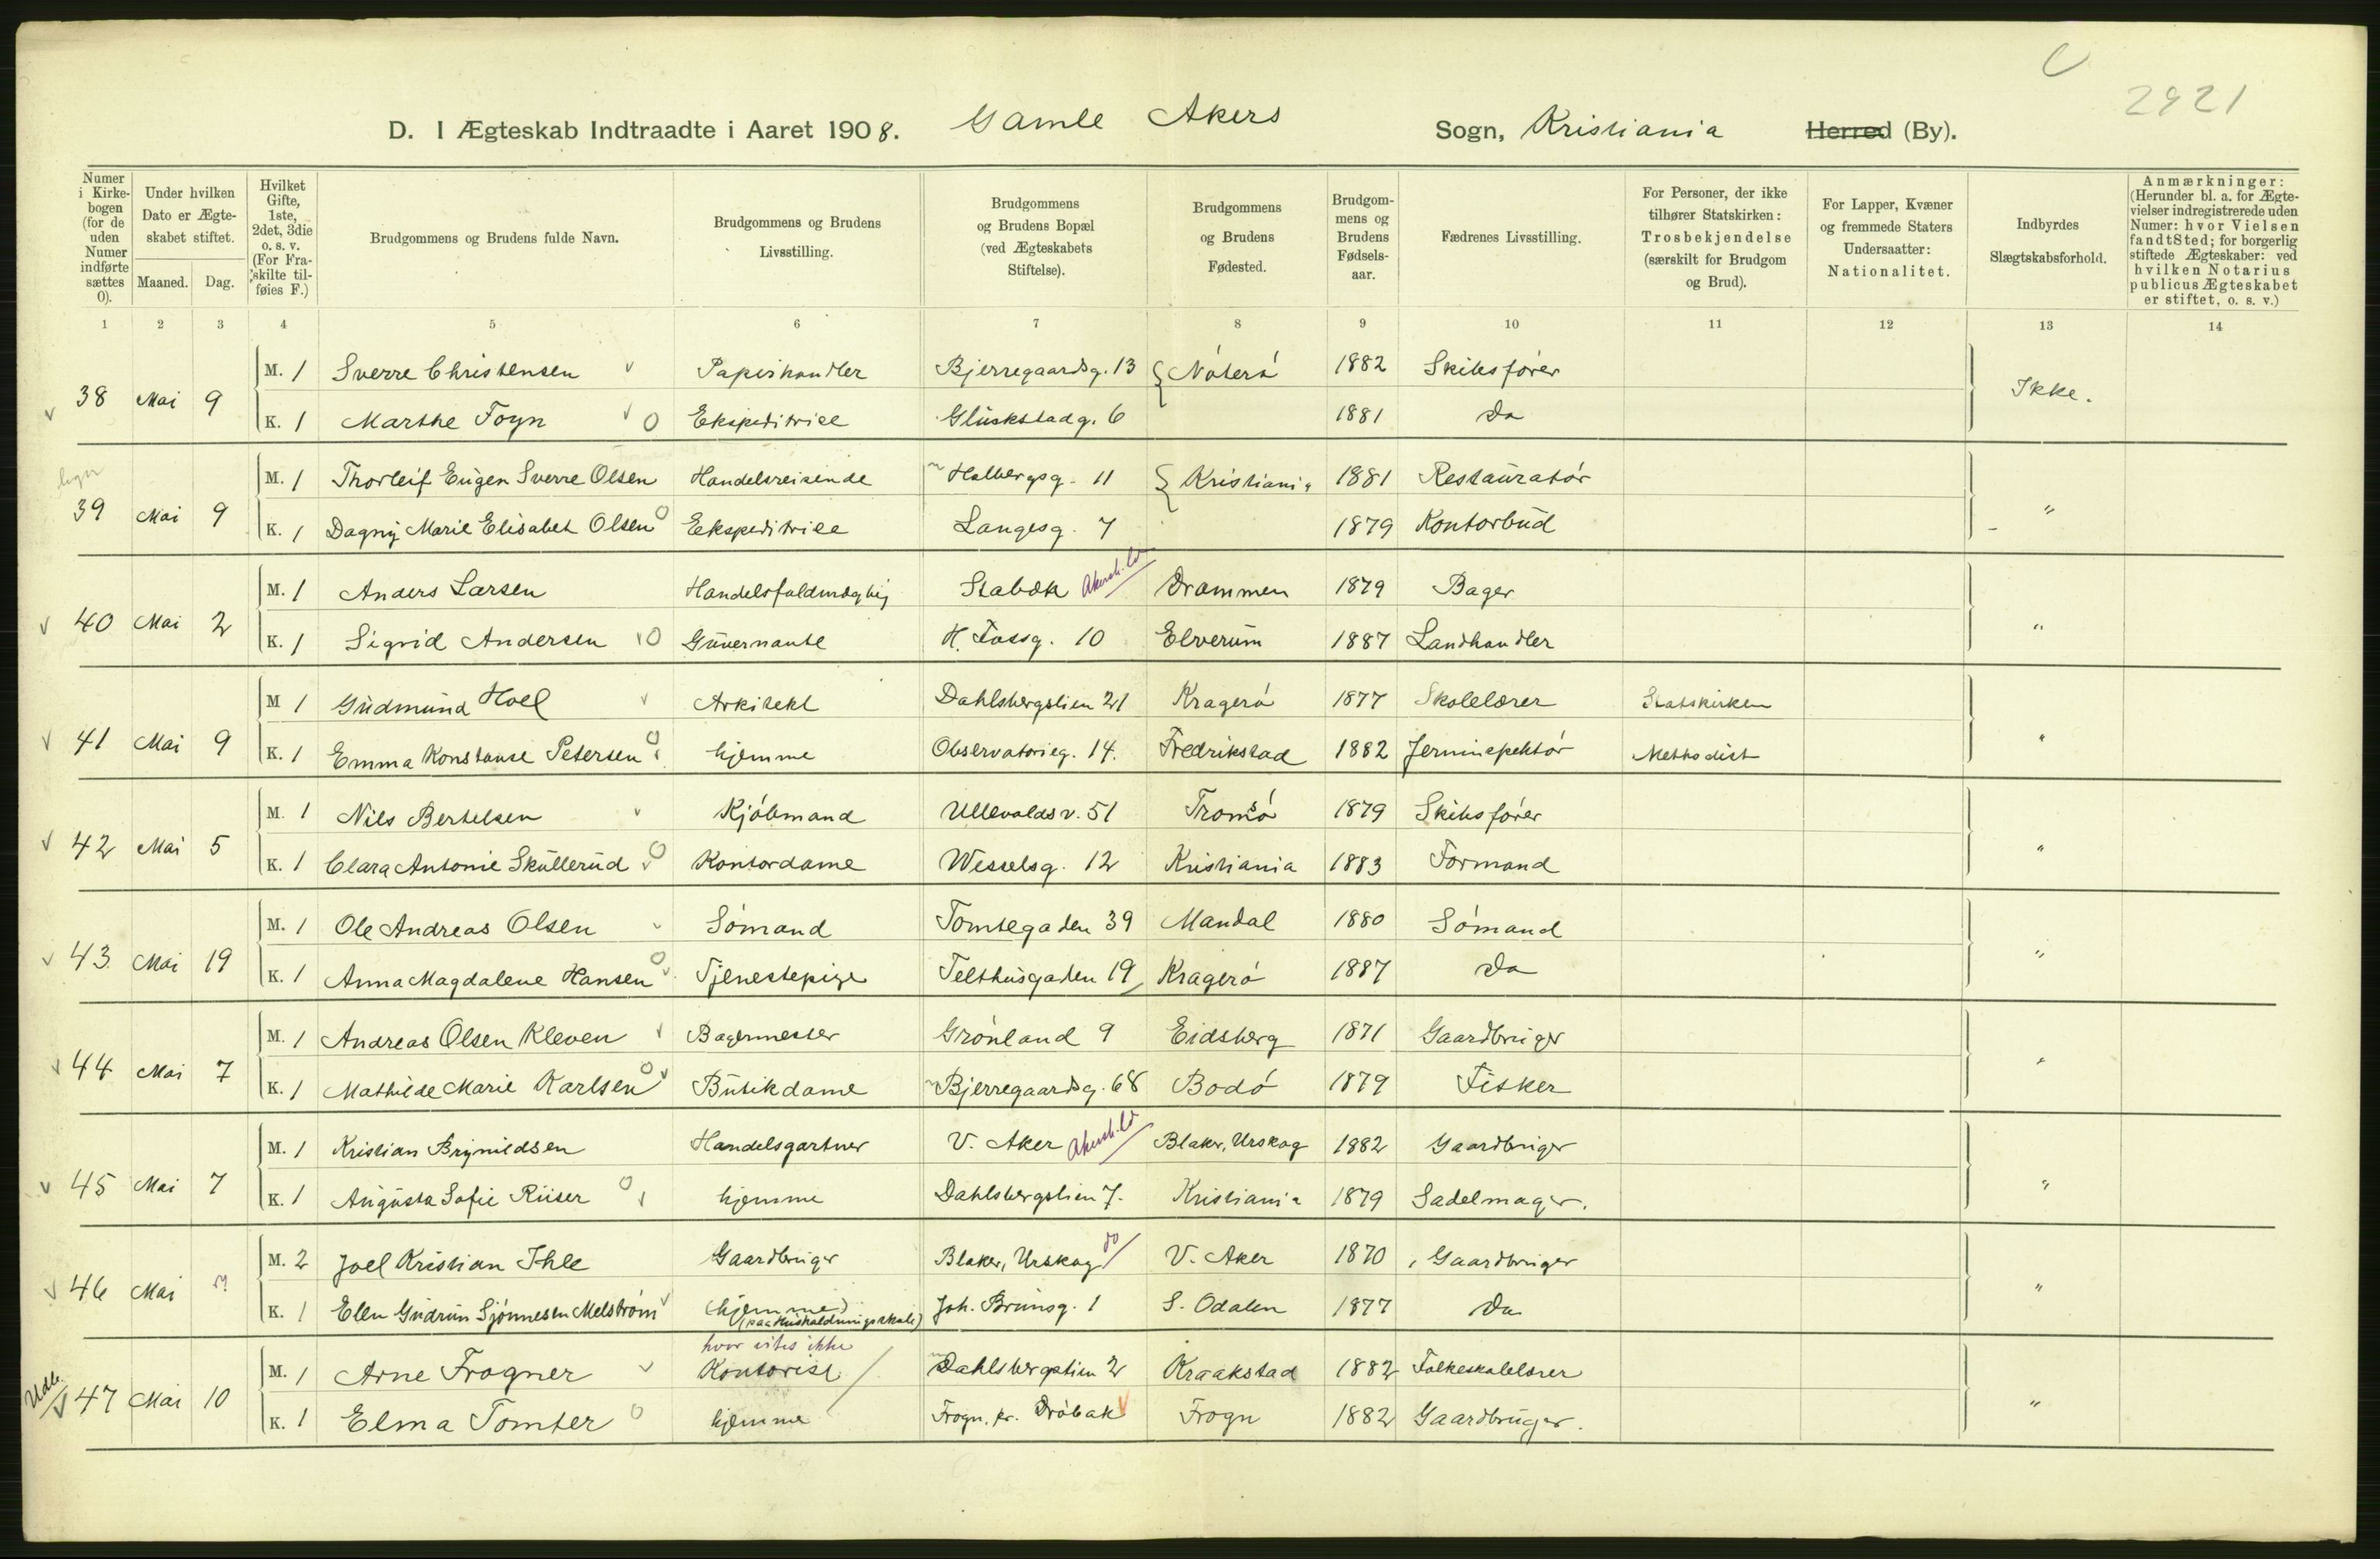 C
2921
D. I Ægteskab Indtraadte i Aaret 1908. Gamle Akers Sogn, Kristiania Herred (By).
Numer i Kirkebogen (for de uden Numer indførte sættes 0).
Under hvilken Dato er Ægteskabet stiftet.
Maaned. Dag.
Hvilket Gifte, 1ste, 2det, 3die o. s. v. (For Fraskilte tilføies F.)
Brudgommens og Brudens fulde Navn.
Brudgommens og Brudens Livsstilling.
Brudgommens og Brudens Bopæl (ved Ægteskabets Stiftelse).
Brudgommens og Brudens Fødested.
Brudgommens og Brudens Fødselsaar.
Fædrenes Livsstilling.
For Personer, der ikke tilhører Statskirken: Trosbekjendelse (særskilt for Brudgom og Brud).
For Lapper, Kvæner og fremmede Staters Undersaatter: Nationalitet.
Indbyrdes Slægtskabsforhold.
Anmærkninger: (Herunder bl. a. for Ægtevielser indregistrerede uden Numer: hvor Vielsen fandt Sted; for borgerlig stiftede Ægteskaber: ved hvilken Notarius publicus Ægteskabet er stiftet, o. s. v.)
1 2 3 4 5 6 7 8 9 10 11 12 13 14
M. 1 Sverre Christensen Papirhandler Bjerregaardsg. 13 Nøterø 1882 Skibsfører
38 Mai 9 Ikke.
K. 1 Marthe Foyn Ekspeditrice Glückstadg. 6 1881 Do
M. 1 Thorleif Eugen Sverre Olsen Handelsreisende Holbergsg. 11 Kristiania 1881 Restauratør
39 Mai 9 "
K. 1 Dagny Marie Elisabet Olsen Eekspeditrice Langesg. 7 1879 Kontorbud
M. 1 Anders Larsen Handelsfuldmægtig Stabæk Drammen 1879 Bager
40 Mai 2 "
K. 1 Sigrid Andersen Guvernante H. Fossg. 10 Elverum 1887 Landhandler
M 1 Gudmund Hoel Arkitekt Dahlsbergstien 21 Kragerø 1877 Skolelærer Statskirken
41 Mai 9 "
K. 1 Emma Konstanse Petersen hjemme Observatorieg. 14. Fredrikstad 1882 Jerninspektør Methodist
M. 1 Nils Bertelsen Kjøbmand Ullevoldsv. 51 Tromsø 1879 Skibsfører
42 Mai 5 "
K. 1 Clara Antonie Skullerud Kontordame Wesselsg. 12 Kristiania 1883 Formand
M. 1 Ole Andreas Olsen Sømand Tomtegaden 39 Mandal 1880 Sømand
43 Mai 19 "
K. 1 Anna Magdalene Hansen Tjenestepige Telthusgaden 19 Kragerø 1887 Do
M. 1 Andreas Olsen Kleven Bagermester Grønland 9 Eidsberg 1871 Gaardbruger
44 Mai 7 "
K. 1 Mathilde Marie Karlsen Butikdame Bjerregaardsg. 68 Bodø 1879 Fisker
M. 1 Kristian Brynildsen Handelsgartner V. Aker Blaker, Urskog 1882 Gaardbruger
45 Mai 7 "
K. 1 Augusta Sofie Riiser hjemme Dahlsbergstien 7. Kristiania 1879 Sadelmager.
M. 2 Joel Kristian Ihle Gaardbruger Blaker, Urskog do V. Aker 1870 Gaardbruger
46 Mai "
K. 1 Elen Gudrun Sjønnesen Melstrøm (hjemme) (paa Husholdningsskole) Joh. Brunsg. 1 S. Odalen 1877 Do
hvor vites ikke
M. 1 Arne Frogner Kontorist Dahlsbergstien 2 Kraakstad 1882 Folkeskolelærer
Udb. 47 Mai 10 "
K. 1 Elma Tomter hjemme Frogn. pr. Drøbak Frogn 1882 Gaardbruger.